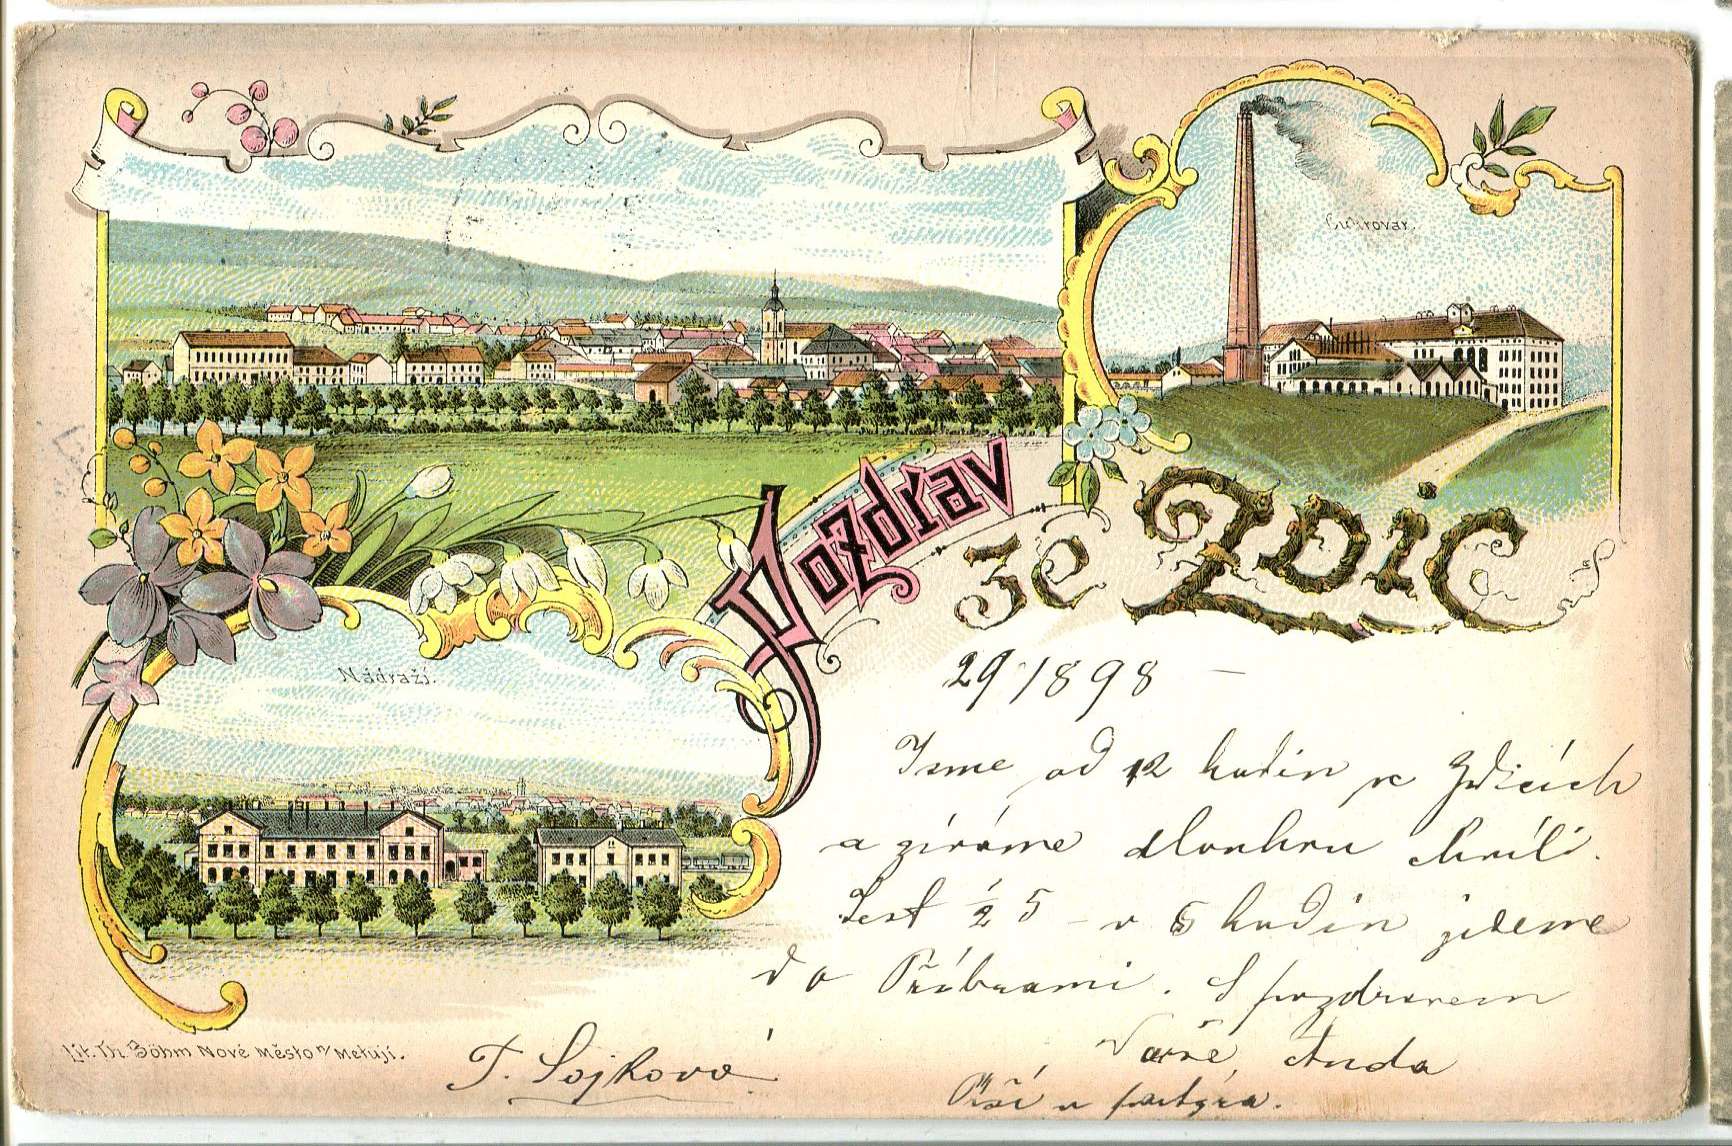 Cukrovar.
Pozdrav
ze Zdic
Nádraží.
29/1898 –
Jsme od 12 hodin ve Zdicích
a zíráme dlouhou chvíli.
Šest ½ 5 – v 5 hodin jedeme
do Příbrami. S pozdravem
Vaše Anda
T. Sojková
Lit. Th. Böhm Nové Město n/Metují.